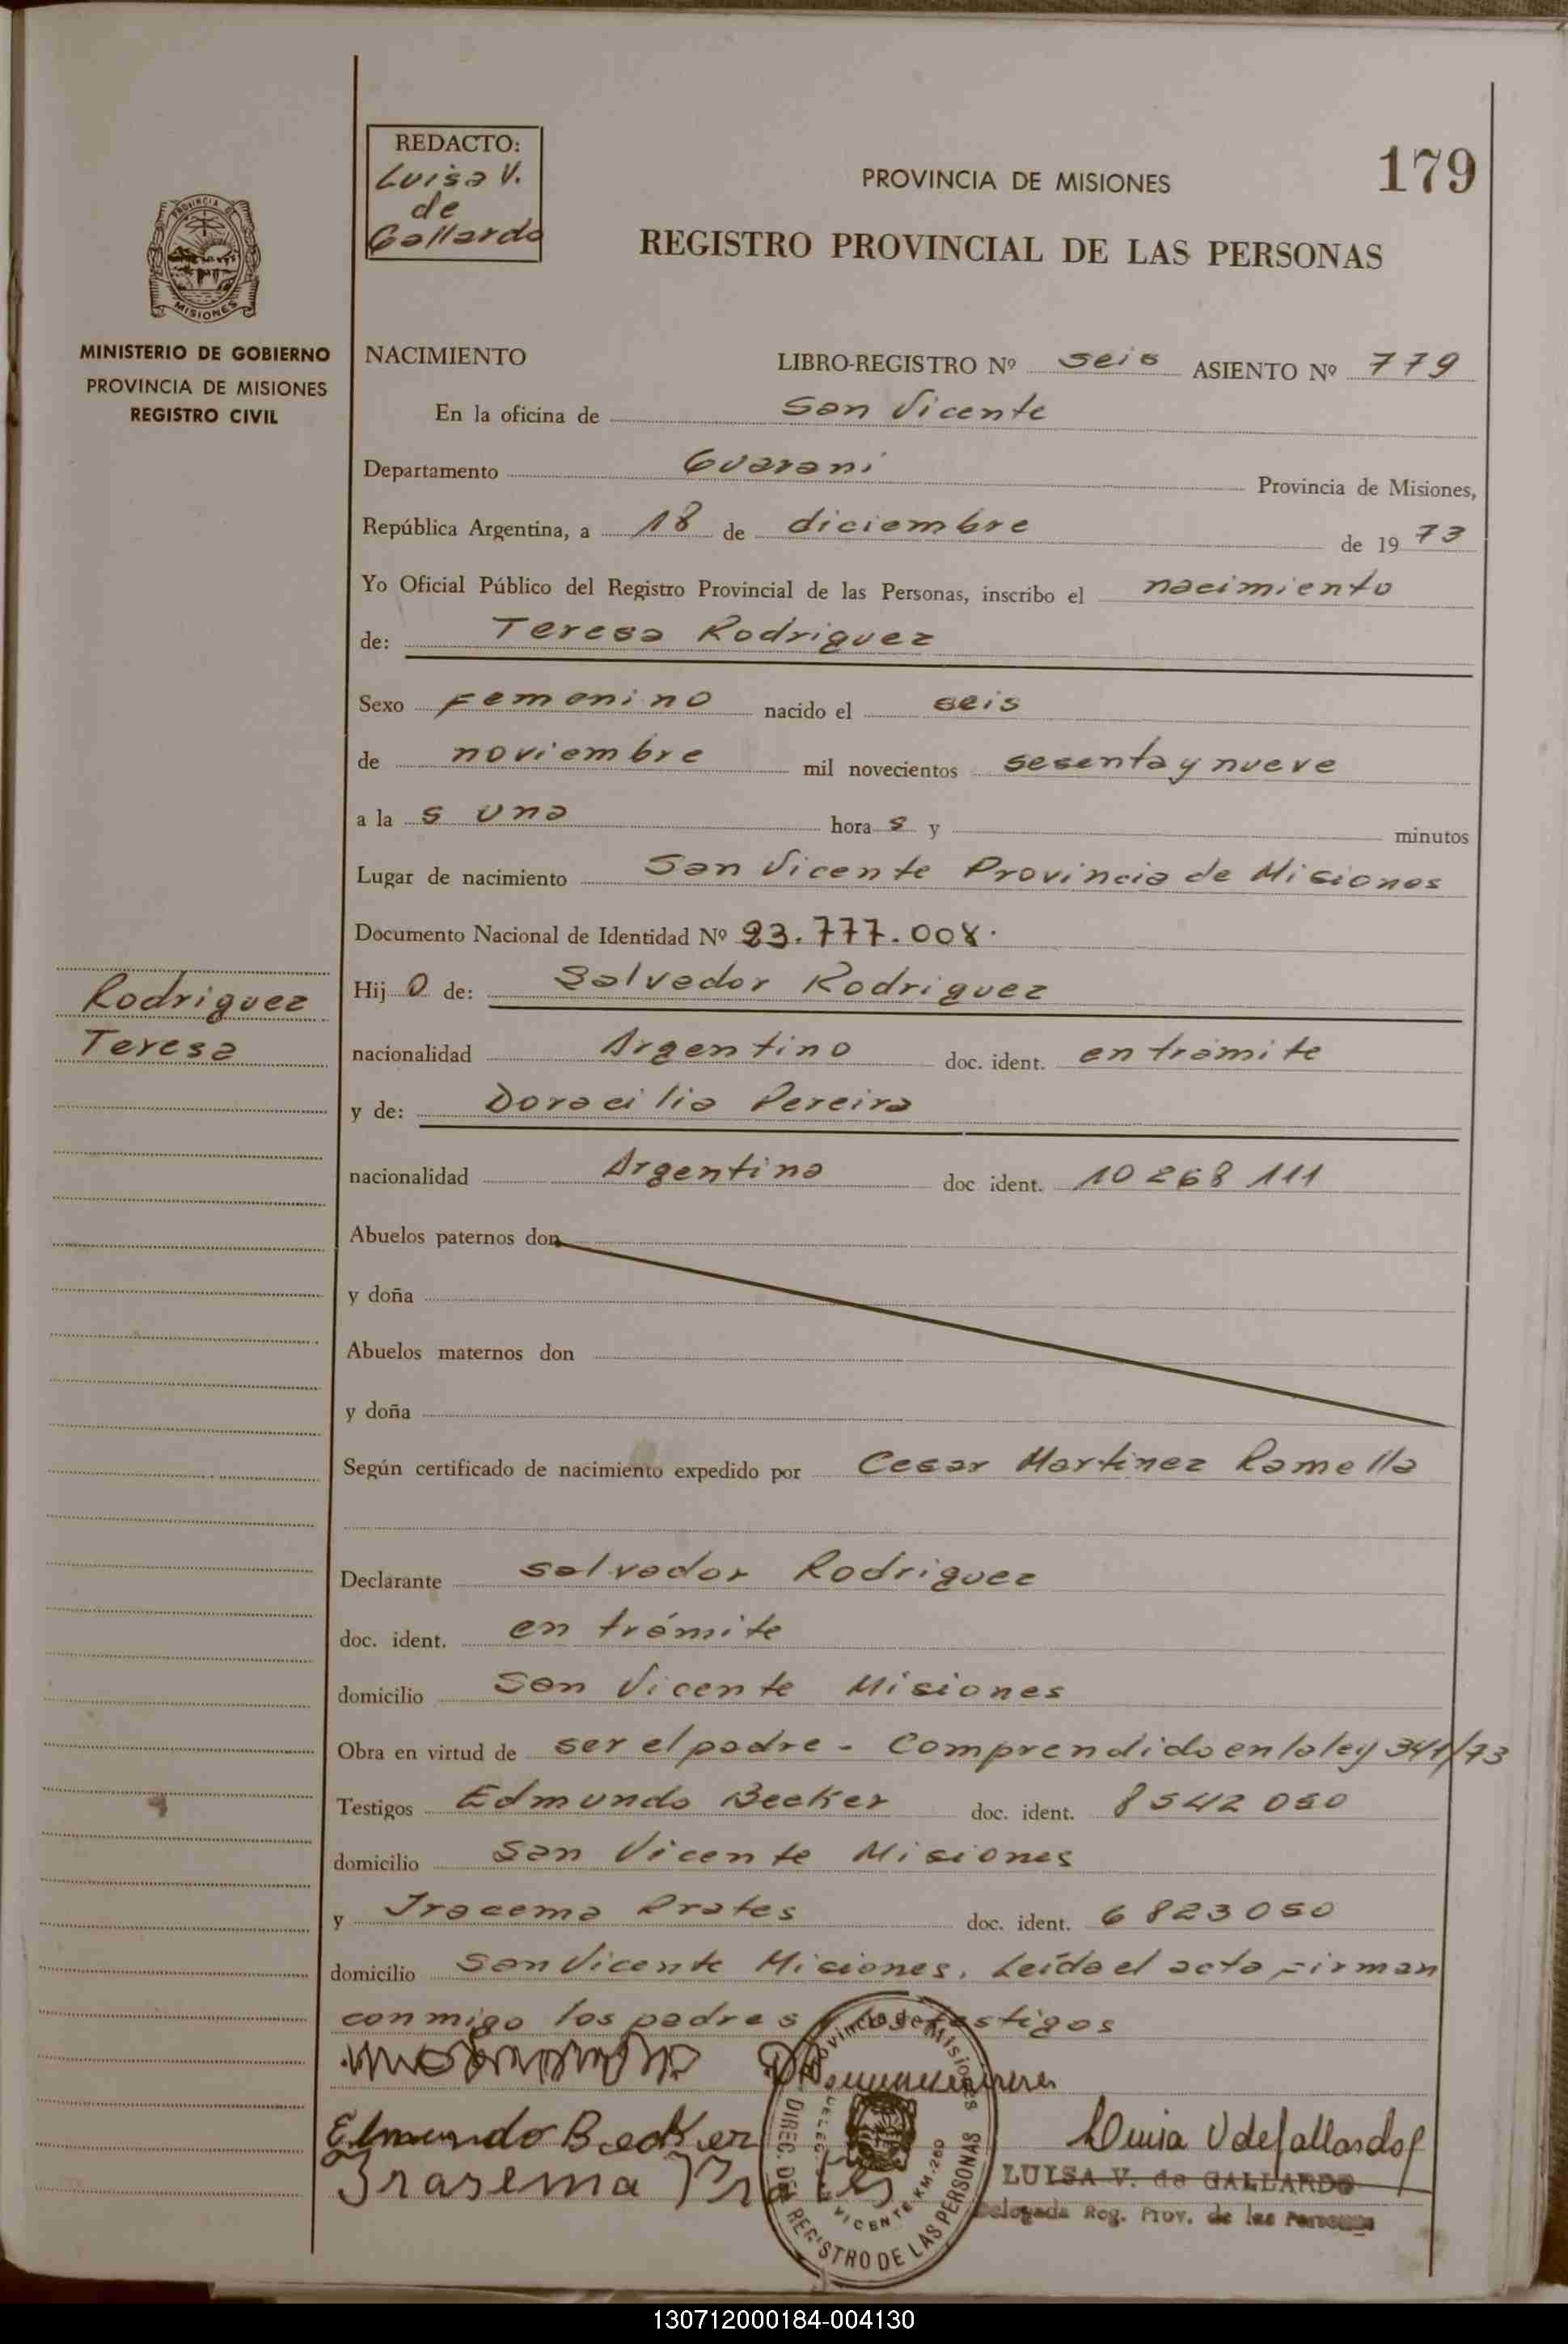 REDACTO:
Luisa V.
de
Gallardo
PROVINCIA DE MISIONES
179
REGISTRO PROVINCIAL DE LAS PERSONAS
PROVINCIA DE
MISIONES
MINISTERIO DE GOBIERNO
PROVINCIA DE MISIONES
REGISTRO CIVIL
NACIMIENTO LIBRO-REGISTRO Nº seis ASIENTO Nº 779
En la oficina de San Vicente
Departamento Guarani Provincia de Misiones,
República Argentina, a 18 de diciembre de 19 73
Yo Oficial Público del Registro Provincial de las Personas, inscribo el nacimiento
de: Teresa Rodriguez
Sexo Femenino nacido el seis
de noviembre mil novecientos sesenta y nueve
a la s una hora s y minutos
Lugar de nacimiento San Vicente Provincia de Misiones
Documento Nacional de Identidad Nº 23.777.008.
Rodriguez
Teresa
Hij a de: Salvador Rodriguez
nacionalidad Argentino doc. ident. en trámite
y de: Doracilia Pereira
nacionalidad Argentina doc ident. 10 268 111
Abuelos paternos don
y doña
Abuelos maternos don
y doña
Según certificado de nacimiento expedido por Cesar Martinez Ramella
Declarante Salvador Rodriguez
doc. ident. en trámite
domicilio San Vicente Misiones
Obra en virtud de ser el padre - Comprendido en la ley 341/73
Testigos Edmundo Becker doc. ident. 8542 050
domicilio San Vicente Misiones
y Iracema Prates doc. ident. 6823050
domicilio San Vicente Misiones. Leída el acta firman
conmigo los padres y testigos
Edmundo Becker
Irasema Prates
Provincia de Misiones
DIREC. DEL REGISTRO DE LAS PERSONAS
VICENTE KM. 260
Luisa V de Gallardo
LUISA V. de GALLARDO
Delegada Reg. Prov. de las Personas
130712000184-004130